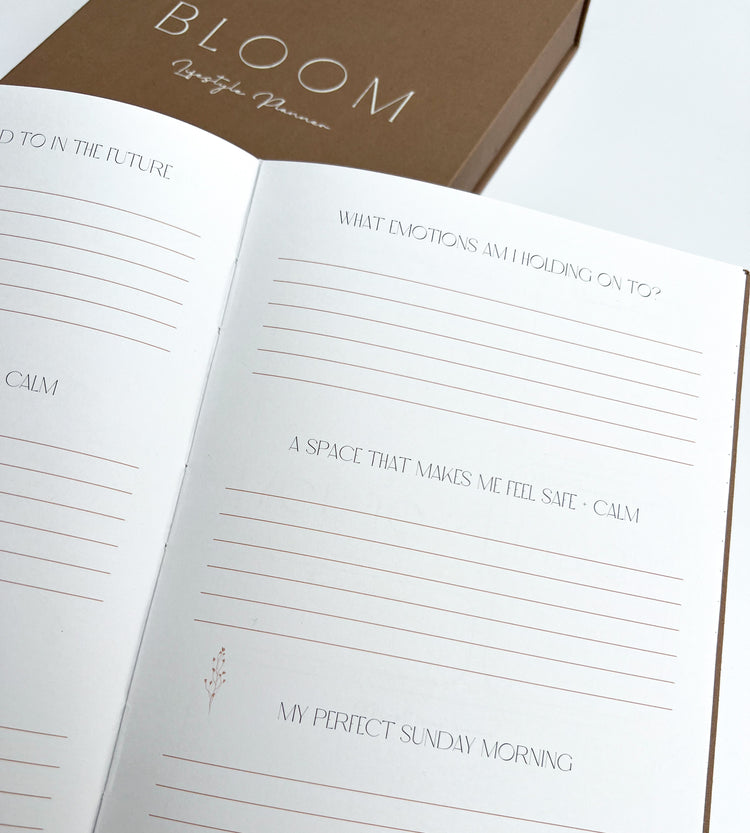 BLOOM
Lifestyle Planner
TO IN THE FUTURE
CALM
WHAT EMOTIONS AM I HOLDING ON TO?
A SPACE THAT MAKES ME FEEL SAFE + CALM
MY PERFECT SUNDAY MORNING